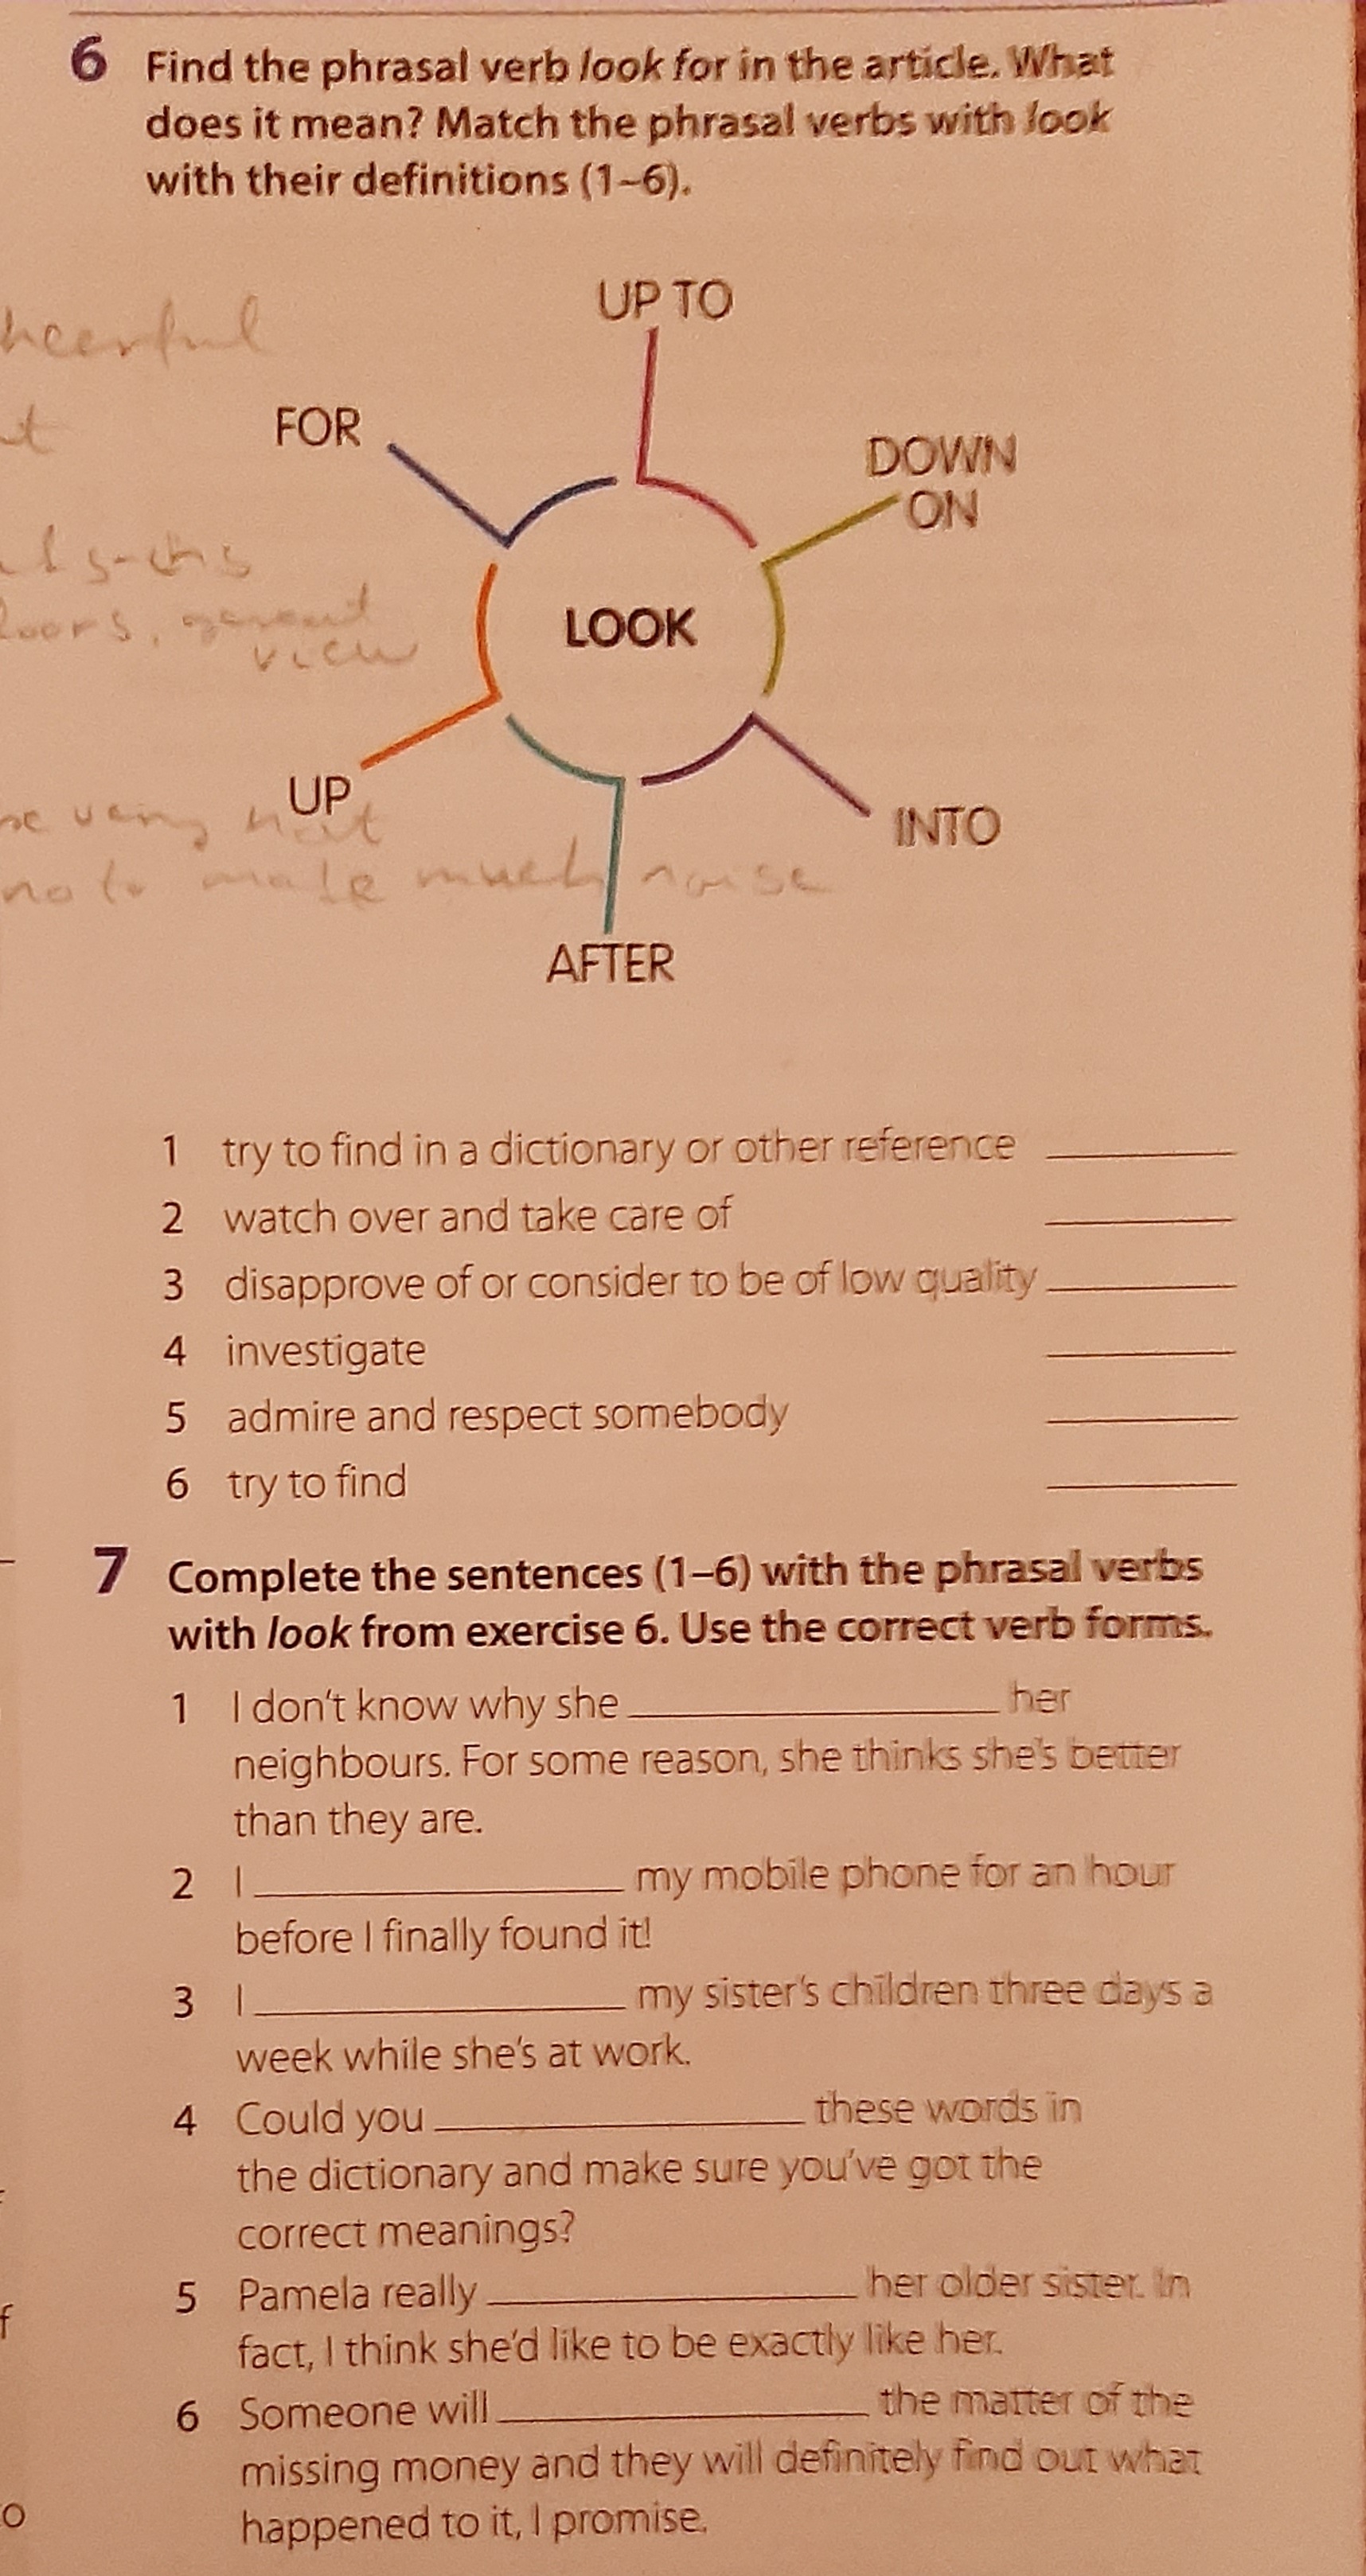 6 Find the phrasal verb look for in the article. What
does it mean? Match the phrasal verbs with look
with their definitions (1–6).
UP TO
FOR
DOWN
ON
LOOK
view
UP
INTO
very
no to make much noise
AFTER
1 try to find in a dictionary or other reference
2 watch over and take care of
3 disapprove of or consider to be of low quality
4 investigate
5 admire and respect somebody
6 try to find
7 Complete the sentences (1–6) with the phrasal verbs
with look from exercise 6. Use the correct verb forms.
1 I don't know why she ____________ her
neighbours. For some reason, she thinks she's better
than they are.
2 I ____________ my mobile phone for an hour
before I finally found it!
3 I ____________ my sister's children three days a
week while she's at work.
4 Could you ____________ these words in
the dictionary and make sure you've got the
correct meanings?
5 Pamela really ____________ her older sister. In
fact, I think she'd like to be exactly like her.
6 Someone will ____________ the matter of the
missing money and they will definitely find out what
happened to it, I promise.